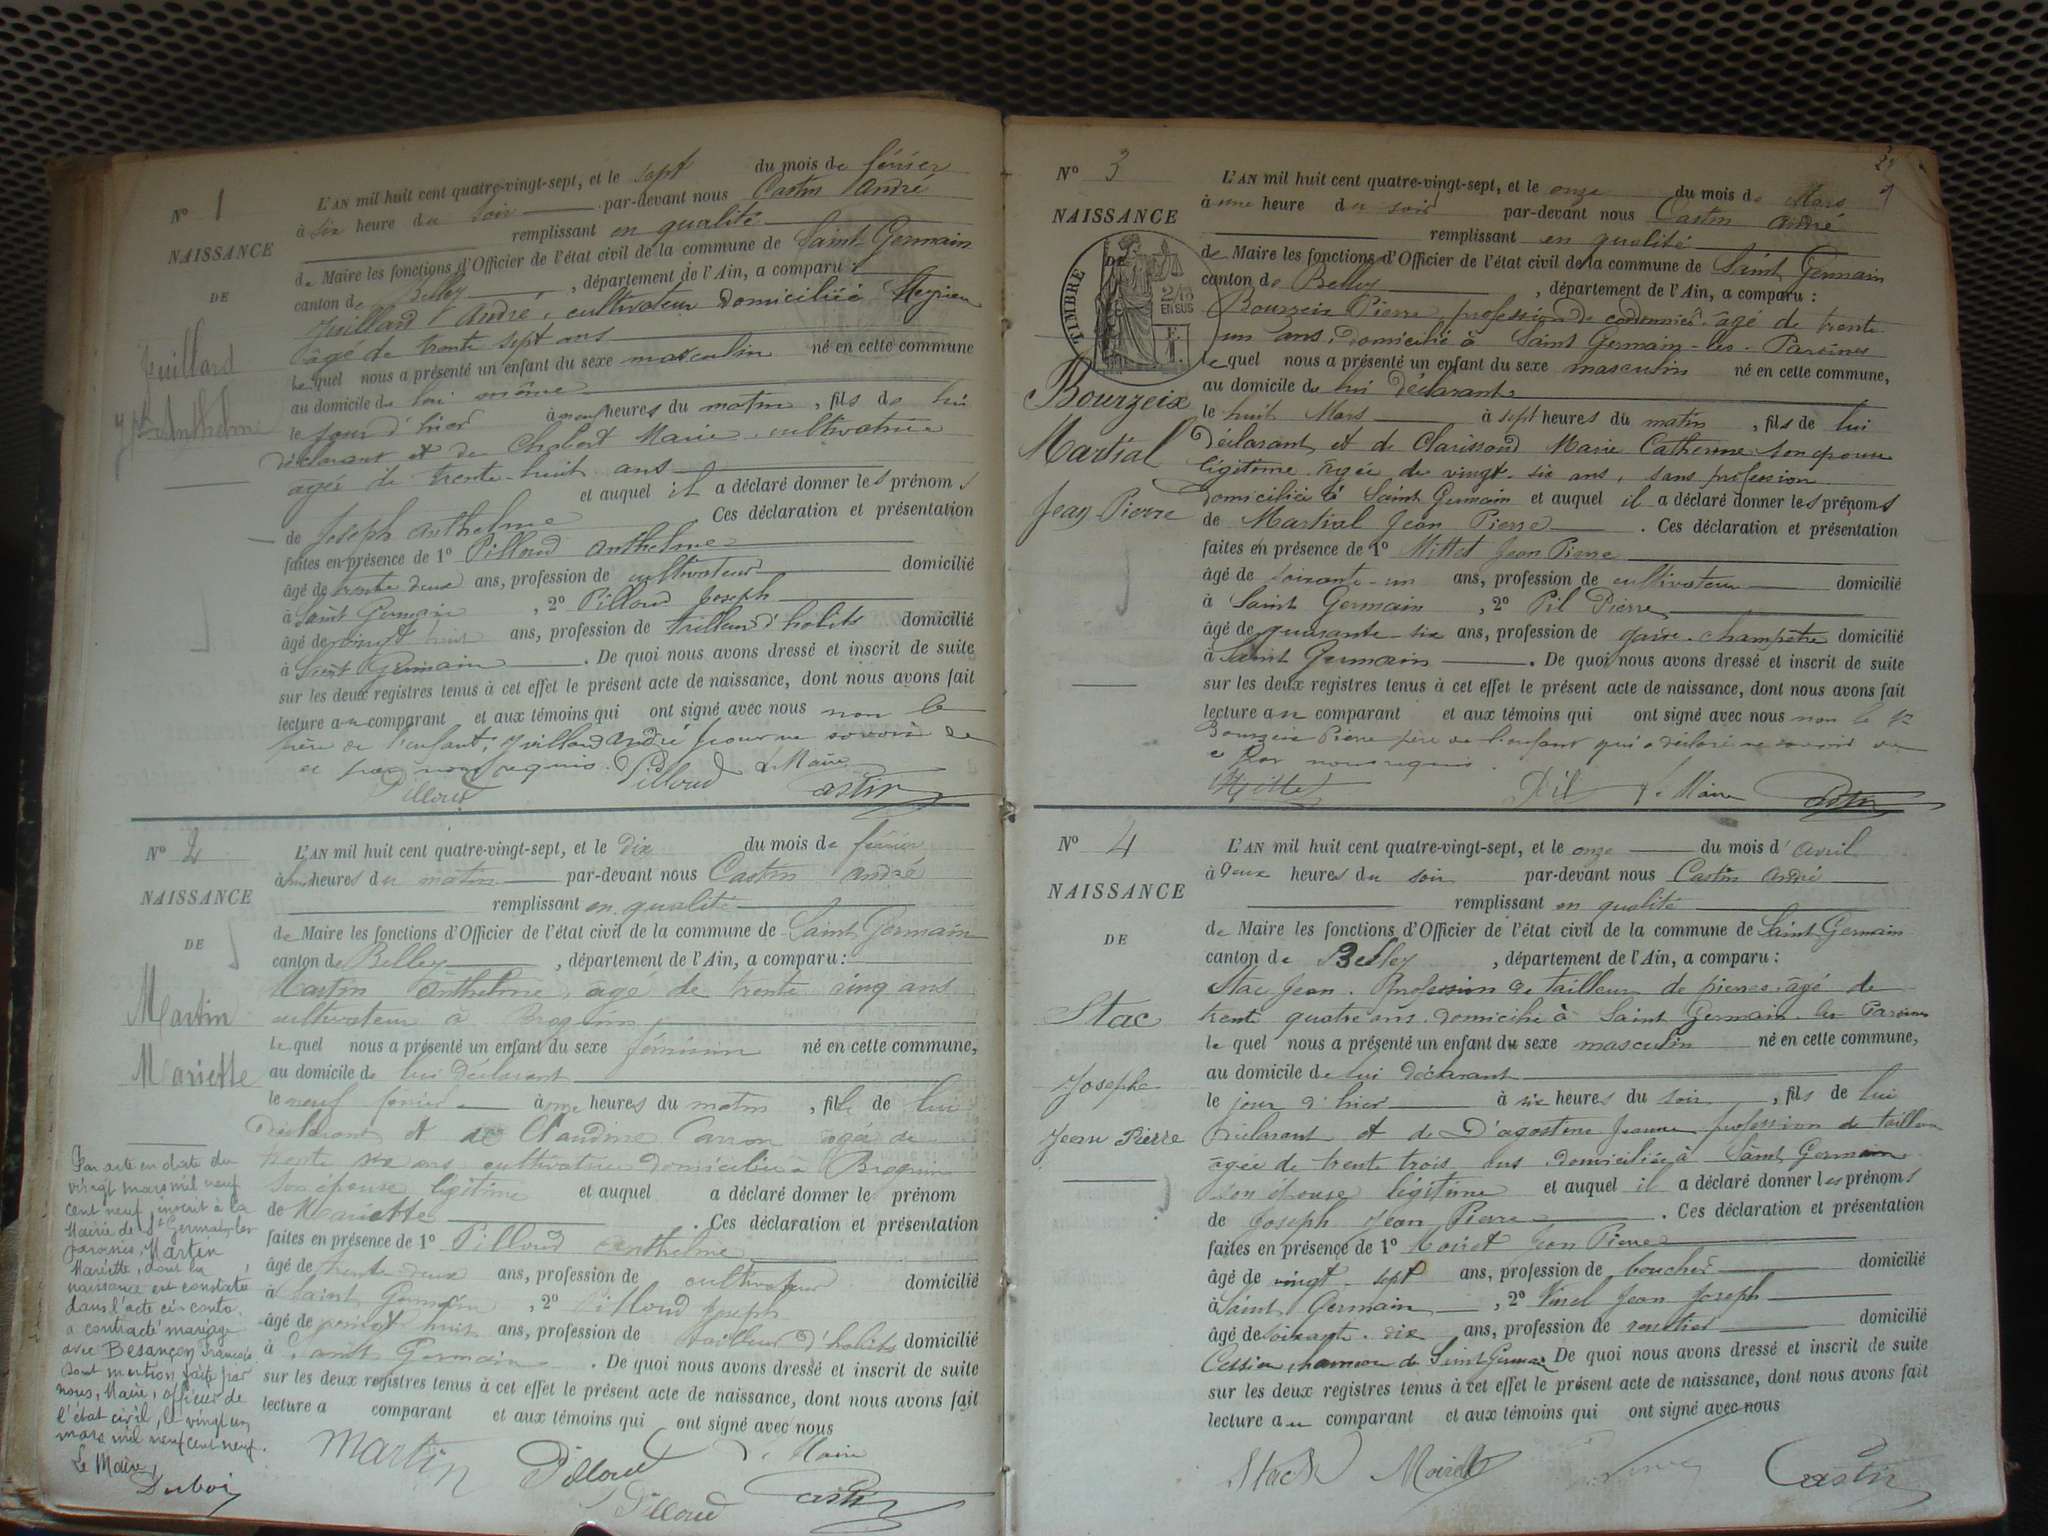 N° 1
NAISSANCE
DE
Juillard
Jh Anthelme
L'AN mil huit cent quatre-vingt-sept, et le sept du mois de février
à six heure du soir par-devant nous Castin André
remplissant en qualité
de Maire les fonctions d'Officier de l'état civil de la commune de Saint Germain
canton de Belley, département de l'Ain, a comparu :
Juillard André, cultivateur domicilié
âgé de trente sept ans
lequel nous a présenté un enfant du sexe masculin né en cette commune
au domicile de lui même
le jour d'hier à neuf heures du matin, fils de lui
déclarant et de Chabert Marie cultivatrice
agée de trente-huit ans
et auquel il a déclaré donner les prénoms
de Joseph Anthelme Ces déclaration et présentation
faites en présence de 1° Pilloud Anthelme
âgé de trente deux ans, profession de cultivateur domicilié
à Saint Germain, 2° Pilloud Joseph
âgé de vingt huit ans, profession de tailleur d'habits domicilié
à Saint Germain. De quoi nous avons dressé et inscrit de suite
sur les deux registres tenus à cet effet le présent acte de naissance, dont nous avons fait
lecture au comparant et aux témoins qui ont signé avec nous non le
père de l'enfant, Juillard André pour ne savoir de
ce par nous requis. Pilloud Le Maire
Pilloud Castin
N° 2
NAISSANCE
DE
Martin
Mariette
L'AN mil huit cent quatre-vingt-sept, et le dix du mois de février
à heures du matin par-devant nous Castin André
remplissant en qualité
de Maire les fonctions d'Officier de l'état civil de la commune de Saint Germain
canton de Belley, département de l'Ain, a comparu :
Martin Anthelme, âgé de trente cinq ans
cultivateur à
lequel nous a présenté un enfant du sexe féminin né en cette commune,
au domicile de lui déclarant
le neuf février à heures du matin, fille de lui
déclarant et de Claudine Carron agée de
trente six ans cultivatrice domiciliée à
son épouse légitime et auquel a déclaré donner le prénom
de Mariette. Ces déclaration et présentation
faites en présence de 1° Pilloud Anthelme
âgé de trente deux ans, profession de cultivateur domicilié
à Saint Germain, 2° Pilloud Joseph
âgé de vingt huit ans, profession de tailleur d'habits domicilié
à Saint Germain. De quoi nous avons dressé et inscrit de suite
sur les deux registres tenus à cet effet le présent acte de naissance, dont nous avons fait
lecture a comparant et aux témoins qui ont signé avec nous
Martin Pilloud Le Maire
Pilloud Castin
Par acte en date du
vingt mars mil neuf
cent neuf, inscrit à la
Mairie de St Germain les
paroisses, Martin
Mariette, dont la
naissance est constatée
dans l'acte ci-contre
a contracté mariage
avec Besançon François
dont mention faite par
nous, Maire, officier de
l'état civil, le vingt un
mars mil neuf cent neuf.
Le Maire,
Duboi
N° 3
NAISSANCE
DE
TIMBRE
2/10
EN SUS
Bourzeix
Martial
Jean Pierre
L'AN mil huit cent quatre-vingt-sept, et le onze du mois de Mars
à une heure du soir par-devant nous Castin André
remplissant en qualité
de Maire les fonctions d'Officier de l'état civil de la commune de Saint Germain
canton de Belley, département de l'Ain, a comparu :
Bourzeix Pierre, profession de cordonnier âgé de trente
un ans, domicilié à Saint Germain-les-Paroisses
lequel nous a présenté un enfant du sexe masculin né en cette commune,
au domicile de lui déclarant
le huit Mars à sept heures du matin, fils de lui
déclarant et de Clarissou Marie Catherine son épouse
légitime agée de vingt-six ans, sans profession
domiciliée à Saint Germain et auquel il a déclaré donner les prénoms
de Martial Jean Pierre. Ces déclaration et présentation
faites en présence de 1° Mittet Jean Pierre
âgé de soixante-un ans, profession de cultivateur domicilié
à Saint Germain, 2° Pil Pierre
âgé de quarante-six ans, profession de garde-champêtre domicilié
à Saint Germain. De quoi nous avons dressé et inscrit de suite
sur les deux registres tenus à cet effet le présent acte de naissance, dont nous avons fait
lecture au comparant et aux témoins qui ont signé avec nous non le
Bourzeix Pierre père de l'enfant qui a déclaré ne savoir de
ce par nous requis.
Mittet Pil Le Maire Castin
N° 4
NAISSANCE
DE
Stac
Joseph
Jean Pierre
L'AN mil huit cent quatre-vingt-sept, et le onze du mois d'avril
à deux heures du soir par-devant nous Castin André
remplissant en qualité
de Maire les fonctions d'Officier de l'état civil de la commune de Saint Germain
canton de Belley, département de l'Ain, a comparu :
Stac Jean. Profession de tailleur de pierres âgé de
trente quatre ans domicilié à Saint Germain les Paroisses
lequel nous a présenté un enfant du sexe masculin né en cette commune,
au domicile de lui déclarant
le jour d'hier à six heures du soir, fils de lui
déclarant et de D'agostene Jeanne profession de tailleur
agée de trente trois ans domiciliée à Saint Germain
son épouse légitime et auquel il a déclaré donner les prénoms
de Joseph Jean Pierre. Ces déclaration et présentation
faites en présence de 1° Moiret Jean Pierre
âgé de vingt-sept ans, profession de boucher domicilié
à Saint Germain, 2° Vinel Jean Joseph
âgé de soixante-dix ans, profession de rentier domicilié
hameau de Saint Germain De quoi nous avons dressé et inscrit de suite
sur les deux registres tenus à cet effet le présent acte de naissance, dont nous avons fait
lecture au comparant et aux témoins qui ont signé avec nous
Moiret Castin